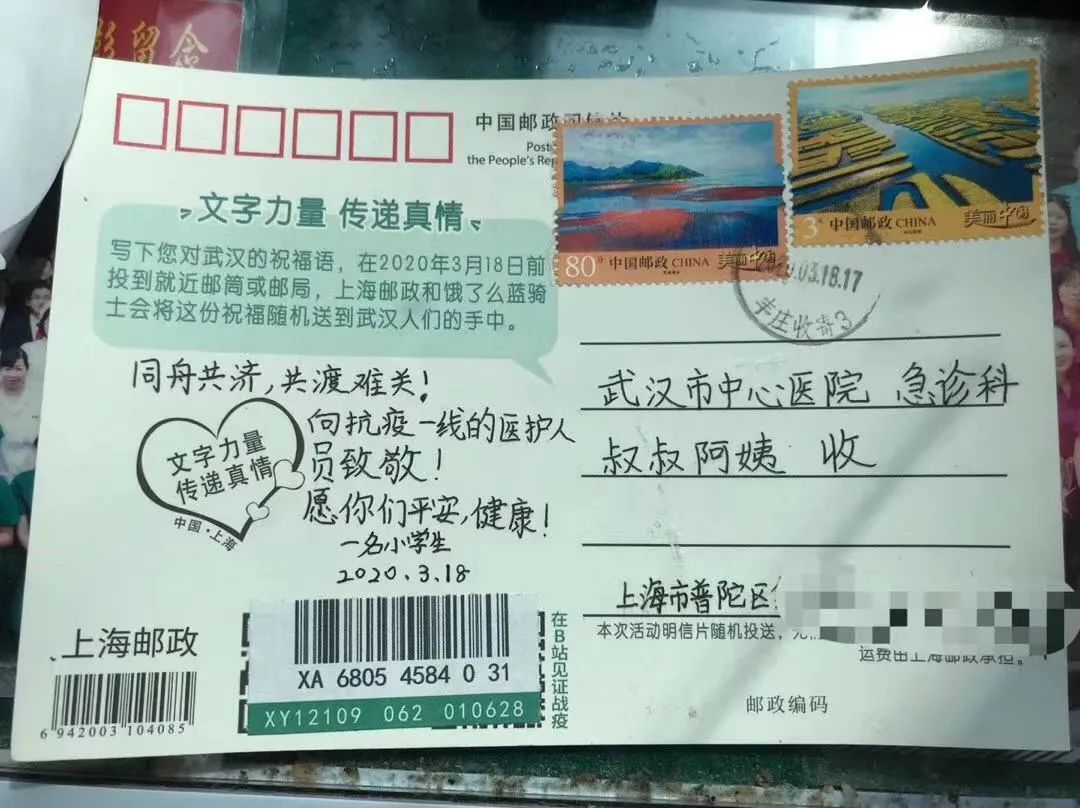 留念
中国邮政
Post
the People's Rep
80分 中国邮政 CHINA 美丽中国
3元 中国邮政 CHINA 美丽中国
03.18.17
丰庄收寄3
文字力量 传递真情
写下您对武汉的祝福语，在2020年3月18日前
投到就近邮筒或邮局，上海邮政和饿了么蓝骑
士会将这份祝福随机送到武汉人们的手中。
同舟共济，共渡难关！
向抗疫一线的医护人
员致敬！
愿你们平安，健康！
一名小学生
2020.3.18
文字力量
传递真情
中国·上海
武汉市中心医院 急诊科
叔叔阿姨 收
上海市普陀区
本次活动明信片随机投送，
运费由上海邮政承担。
邮政编码
上海邮政
6 942003 104085
XA 6805 4584 0 31
XY12109 062 010628
在B站见证战疫